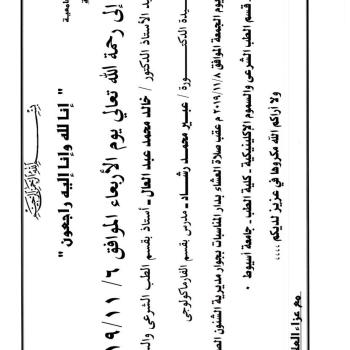 بسم الله الرحمن الرحيم
" إنا لله وإنا إليه راجعون "
إلى رحمة الله تعالي يوم الأربعاء الموافق ٦ / ١١ / ١٩
الأستاذ الدكتور / خالد محمد عبد العال - أستاذ بقسم الطب الشرعى
الدكتـــورة / عبير محمد رشاد - مدرس بقسم الفارماكولوجى
يوم الجمعة الموافق ٢٠١٩/١١/٨ م عقب صلاة العشاء بدار المناسبات بجوار مديرية الشئون
قسم الطب الشرعى والسموم الإكلينيكية - كلية الطب - جامعة أسيوط .
ولا أراكم الله مكروها في عزيز لديكم ،،،،
مع عزاء